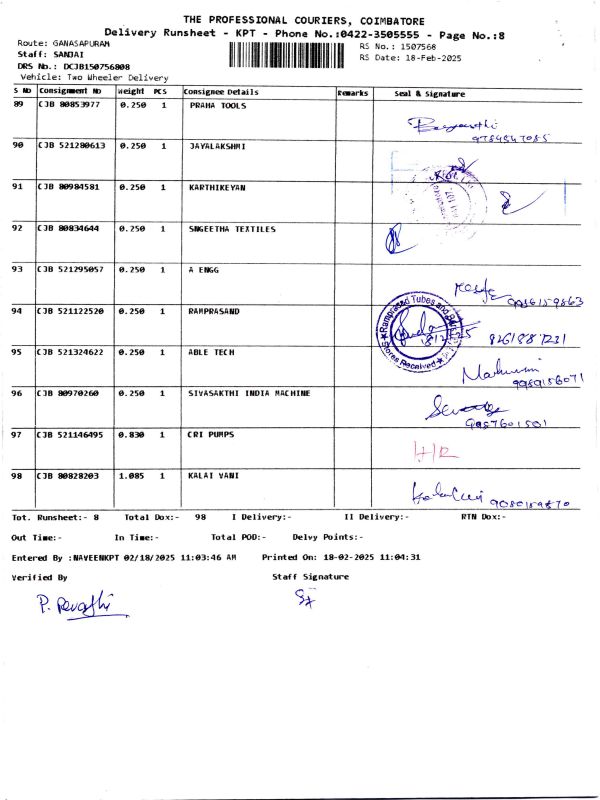 THE PROFESSIONAL COURIERS, COIMBATORE
Delivery Runsheet - KPT - Phone No.:0422-3505555 - Page No.:8
Route: GANASAPURAM
RS No.: 1507568
Staff: SANJAI
RS Date: 18-Feb-2025
DRS No.: DCJB150756808
Vehicle: Two Wheeler Delivery
S No Consignment No Weight PCS Consignee Details Remarks Seal & Signature
89 CJB 80853977 0.250 1 PRAHA TOOLS
90 CJB 521280613 0.250 1 JAYALAKSHMI
91 CJB 80984581 0.250 1 KARTHIKEYAN
92 CJB 80834644 0.250 1 SNGEETHA TEXTILES
93 CJB 521295057 0.250 1 A ENGG
94 CJB 521122520 0.250 1 RAMPRASAND
Ramprasad Tubes and
Stores Received
95 CJB 521324622 0.250 1 ABLE TECH
96 CJB 80970260 0.250 1 SIVASAKTHI INDIA MACHINE
97 CJB 521146495 0.830 1 CRI PUMPS
98 CJB 80828203 1.085 1 KALAI VANI
Tot. Runsheet:- 8 Total Dox:- 98 I Delivery:- II Delivery:- RTN Dox:-
Out Time:- In Time:- Total POD:- Delvy Points:-
Entered By :NAVEENKPT 02/18/2025 11:03:46 AM Printed On: 18-02-2025 11:04:31
Verified By Staff Signature
P. Revathi